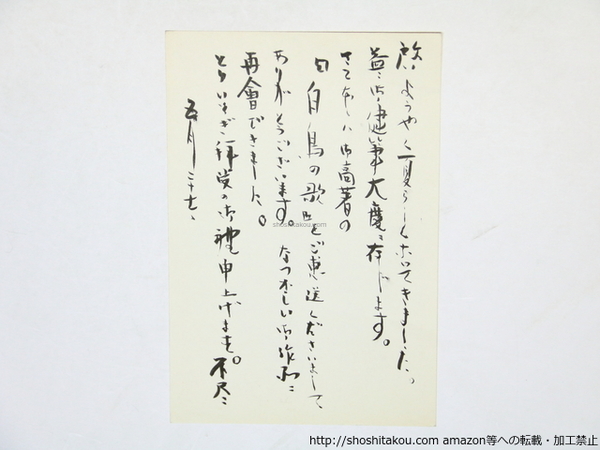 啓 ようやく夏らしくなってきました。
益々御健筆大慶に存じます。
さて 御高著の
『白鳥の歌』をご恵送くださいまして
ありがとうございます。なつかしい御作品に
再會できました。
とりいそぎ拝受の御禮申上げます。不尽
五月二十七
shoshitakou.com
http://shoshitakou.com amazon等への転載・加工禁止